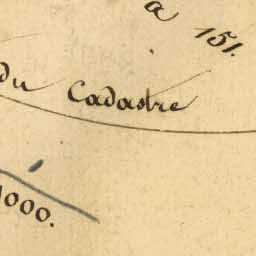 a 151.
du Cadastre
1000.